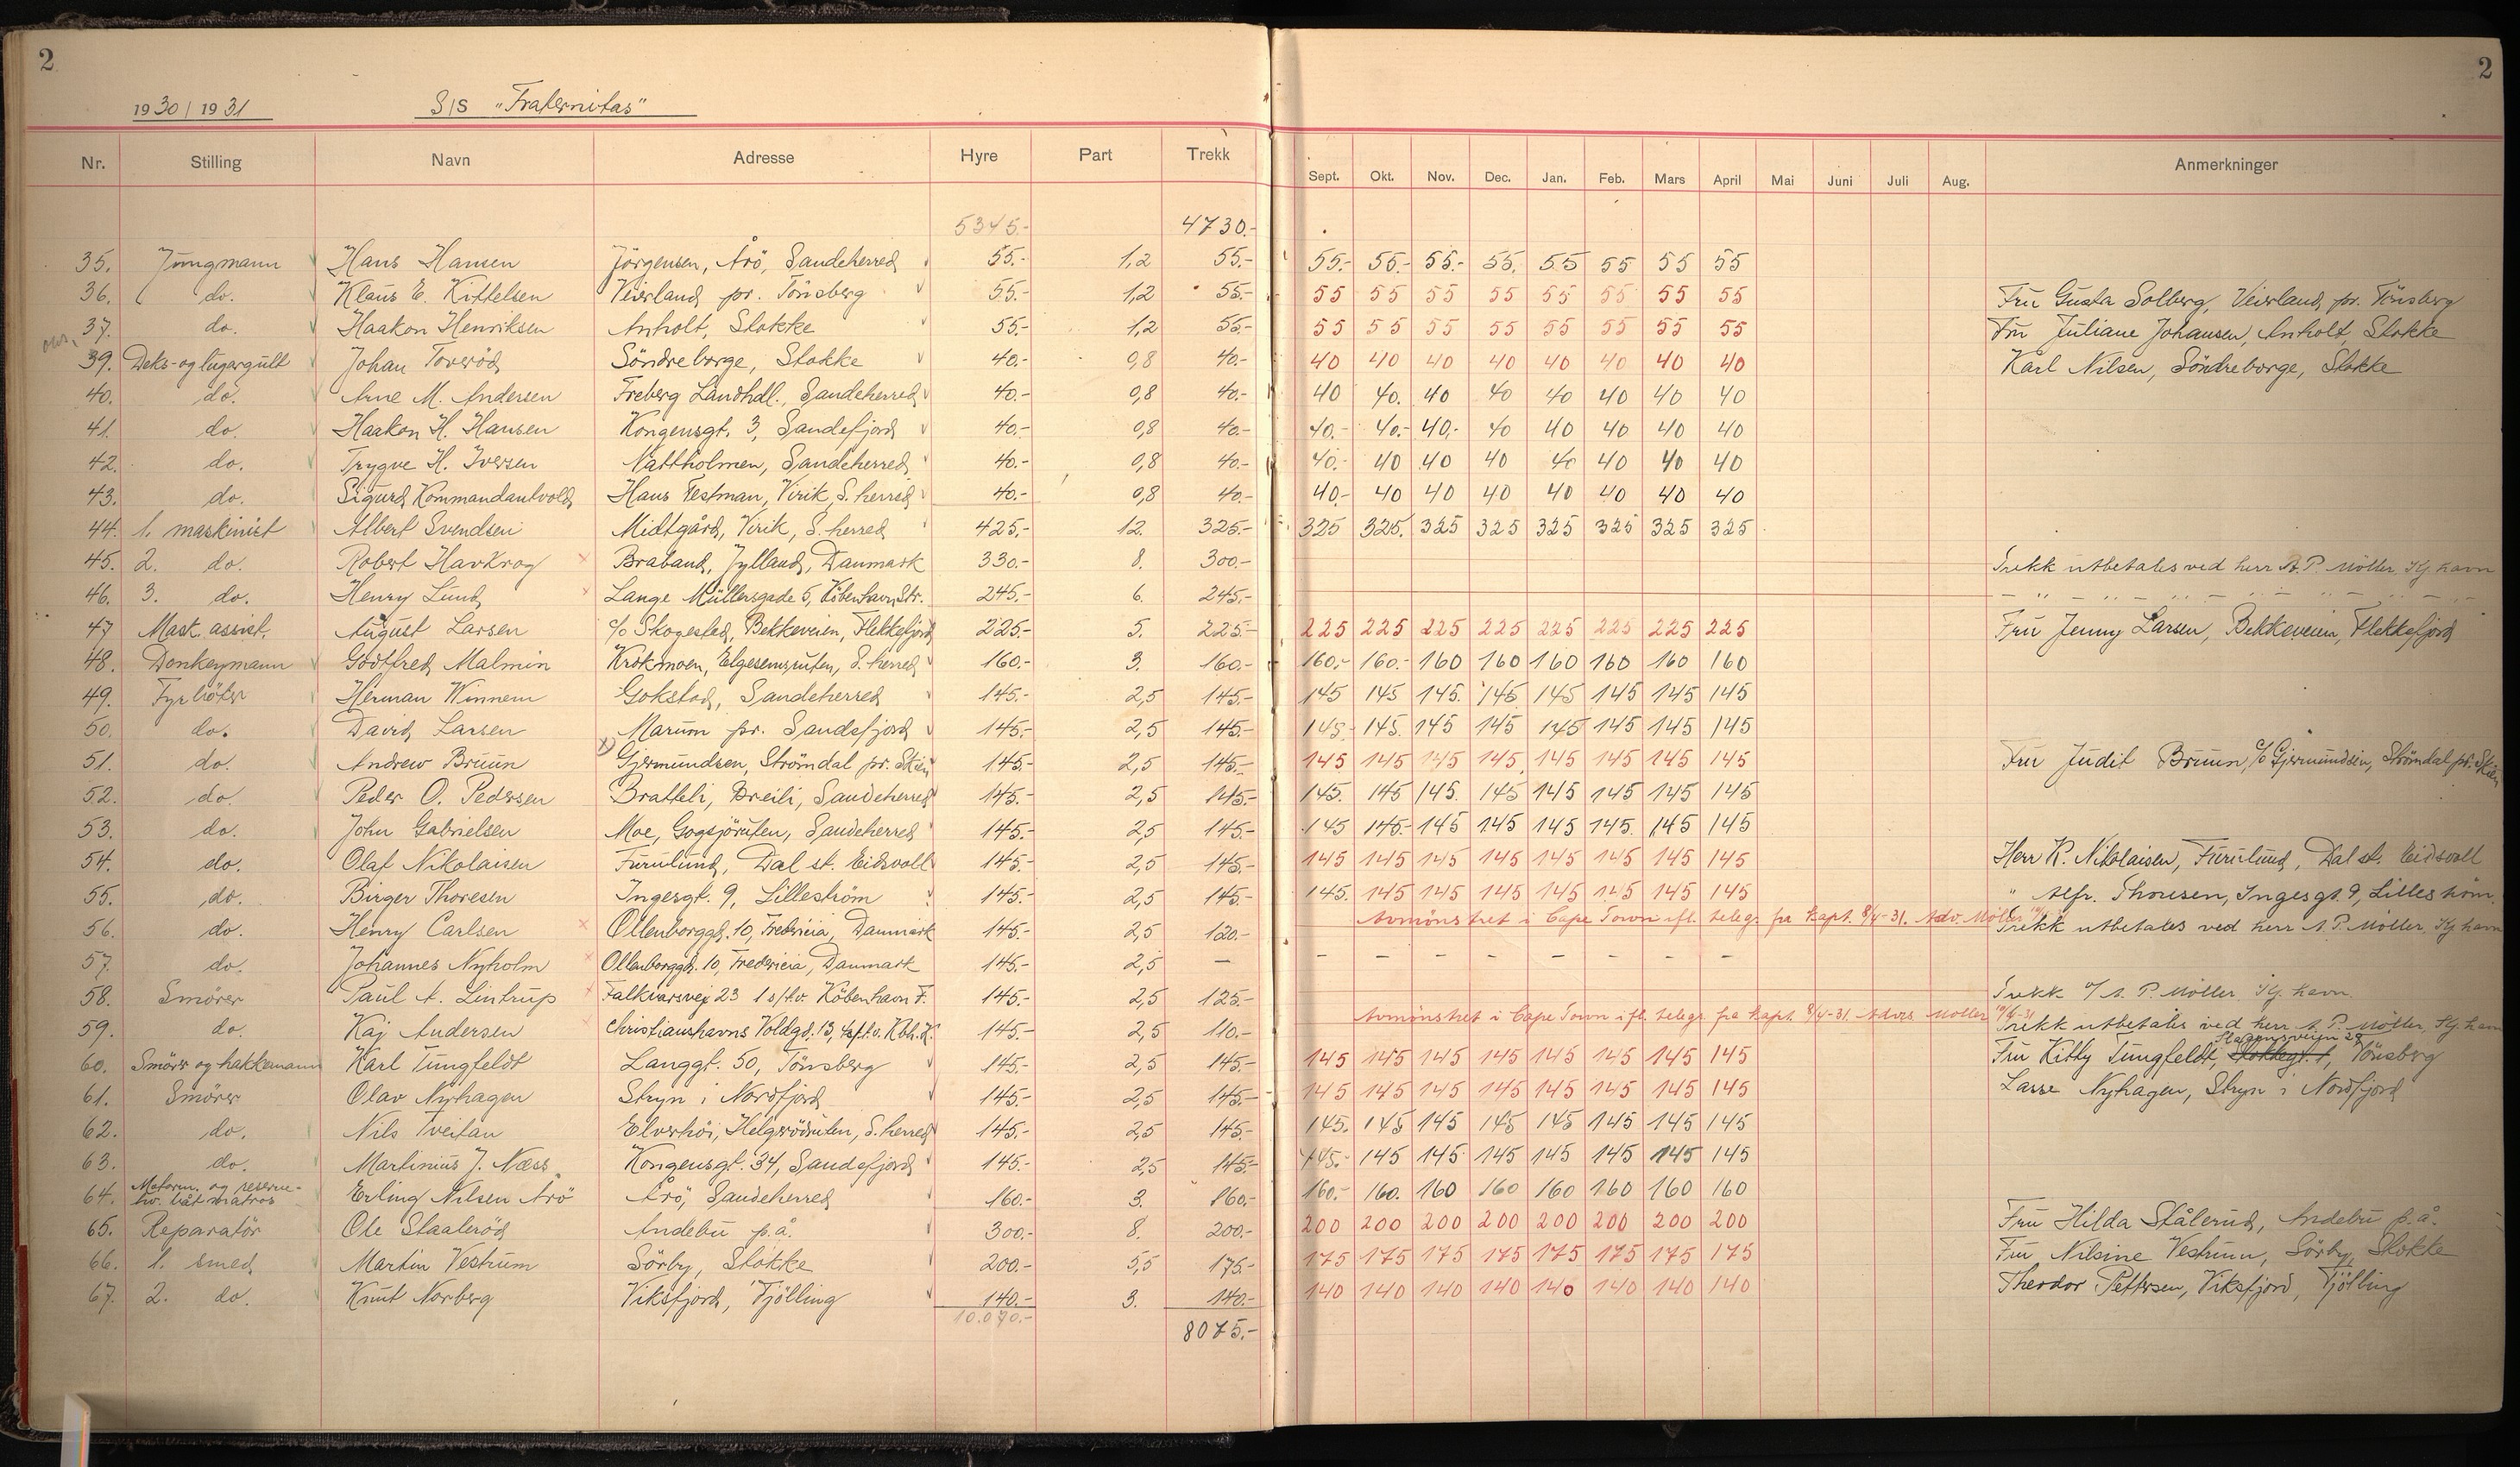 2 2
1930/1931 S/S "Fraternitas"
Nr. Stilling Navn Adresse Hyre Part Trekk Sept. Okt. Nov. Dec. Jan. Feb. Mars April Mai Juni Juli Aug. Anmerkninger
5345.- 4730.-
35. Jungmann Hans Hansen Jörgensen, Årö, Sandeherred 55.- 1,2 55.- 55.- 55.- 55.- 55. 55 55 55 55
36. do. Klaus E. Kittelsen Veierland pr. Tönsberg 55.- 1,2 55.- 55 55 55 55 55 55 55 55 Fru Gusta Solberg, Veierland, pr. Tönsberg
37. do. Haakon Henriksen Anholt, Stokke 55.- 1,2 55.- 55 55 55 55 55 55 55 55 Fru Juliane Johansen, Anholt, Stokke
39. Deks- og lugargutt Johan Toveröd Söndre borge, Stokke 40.- 0,8 40.- 40 40 40 40 40 40 40 40 Karl Nilsen, Söndre borge, Stokke
40. do. Arne M. Andersen Freberg Landhdl., Sandeherred 40.- 0,8 40.- 40 40. 40 40 40 40 40 40
41. do. Haakon H. Hansen Kongensgt. 3, Sandefjord 40.- 0,8 40.- 40.- 40.- 40.- 40 40 40 40 40
42. do. Trygve H. Iversen Nattholmen, Sandeherred 40.- 0,8 40.- 40.- 40 40 40 40 40 40 40
43. do. Sigurd Kommandantvold Hans Festman, Virik, S. herred 40.- 0,8 40.- 40.- 40 40 40 40 40 40 40
44. 1. maskinist Albert Svendsen Midtgård, Virik, S. herred 425.- 12. 325.- 325 325. 325 325 325 325 325 325
45. 2. do. Robert Havkrog Braband, Jylland, Danmark 330.- 8. 300.- Trekk utbetales ved herr A. P. Möller, Kj. havn
46. 3. do. Henry Lund Lange Müllersgade 5, København Str. 245.- 6. 245.- - " - " - " - " - " -
47 Mask. assist. August Larsen c/o Skogestad, Bekkeveien, Flekkefjord 225.- 5. 225.- 225 225 225 225 225 225 225 225 Fru Jenny Larsen, Bekkeveien, Flekkefjord
48. Donkeymann Godtfred Malmin Krokmoen, Elgesemruten, S. herred 160.- 3. 160.- 160.- 160.- 160 160 160 160 160 160
49. Fyrböter Herman Winnem Gokstad, Sandeherred 145.- 2,5 145.- 145 145 145. 145 145 145 145 145
50. do. David Larsen Marum pr. Sandefjord 145.- 2,5 145.- 145.- 145. 145 145 145 145 145 145
51. do. Andrew Bruun Gjermundsen, Strömdal pr. Skien 145.- 2,5 145.- 145 145 145 145 145 145 145 145 Fru Judit Bruun, c/o Gjermundsen, Strömdal pr. Skien
52. do. Peder O. Pedersen Bratteli, Breili, Sandeherred 145.- 2,5 145.- 145. 145 145. 145 145 145 145 145
53. do. John Gabrielsen Moe, Gogsjöruten, Sandeherred 145.- 2,5 145.- 145 145.- 145 145 145 145. 145 145
54. do. Olaf Nikolaisen Furulund, Dal st. Eidsvoll 145.- 2,5 145.- 145 145 145 145 145 145 145 145 Herr K. Nikolaisen, Furulund, Dal st. Eidsvoll
55. do. Birger Thoresen Ingersgt. 9, Lilleström 145.- 2,5 145.- 145. 145 145 145 145 145 145 145 " Alfr. Thoresen, Ingesgt. 9, Lilleström.
56. do. Henry Carlsen Ollenborggd. 10, Fredericia, Danmark 145.- 2,5 120.- Avmönstret i Cape Town ifl. telegr. fra kapt. 8/4-31. Adv. Möller Trekk utbetales ved herr A. P. Möller, Kj. havn
57. do. Johannes Nyholm Ollenborggd. 10, Fredericia, Danmark 145.- 2,5 — - - - - - - - -
58. Smörer Paul A. Lintrup Falkvarsvej 23 1 s/t.v. Köbenhavn F. 145.- 2,5 125.- Trekk v/ A. P. Möller, Kj. havn.
59. do. Kaj Andersen Christianshavns Voldgd. 13, 4s/t.v. Kbh. K. 145.- 2,5 110.- Avmönstret i Cape Town ifl. telegr. fra kapt. 8/4-31. Advis Möller 10/4-31 Trekk utbetales ved herr A. P. Möller, Kj. havn
60. Smörer og hakkemann Karl Tungfeldt Langgt. 50, Tönsberg 145.- 2,5 145.- 145 145 145 145 145 145 145 145 Fru Kitty Tungfeldt, Tönsberg
61. Smörer Olav Nyhagen Stryn i Nordfjord 145.- 2,5 145.- 145 145 145 145 145 145 145 145 Lasse Nyhagen, Stryn i Nordfjord
62. do. Nils Tveitan Elverhöi, Helgerödruten, S. herred 145.- 2,5 145.- 145. 145 145 145 145 145 145 145
63. do. Martinius J. Næss Kongensgt. 34, Sandefjord 145.- 2,5 145.- 145.- 145 145 145 145 145 145 145
64. Motorm. og reserve- hv. båt matros Erling Nilsen Årö Årö, Sandeherred 160.- 3. 160.- 160.- 160. 160 160 160 160 160 160
65. Reparatör Ole Staaleröd Andebu p.å. 300.- 8. 200.- 200 200 200 200 200 200 200 200 Fru Hilda Stålerud, Andebu p.å.
66. 1. smed Martin Vestrum Sörby, Stokke 200.- 5,5 175.- 175 175 175 175 175 175 175 175 Fru Nilsine Vestrum, Sörby, Stokke
67. 2. do. Knut Norberg Viksfjord, Tjölling 140.- 3. 140.- 140 140 140 140 140 140 140 140 Theodor Pettersen, Viksfjord, Tjölling
10.070.- 8075.-